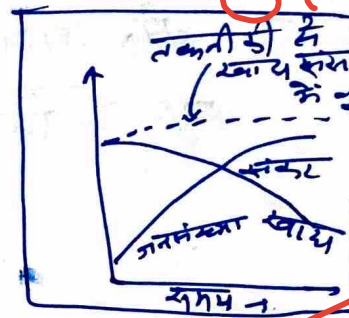 तकनीकी में
खाद्य
में
संकट
जनसंख्या खाद्य
समय →